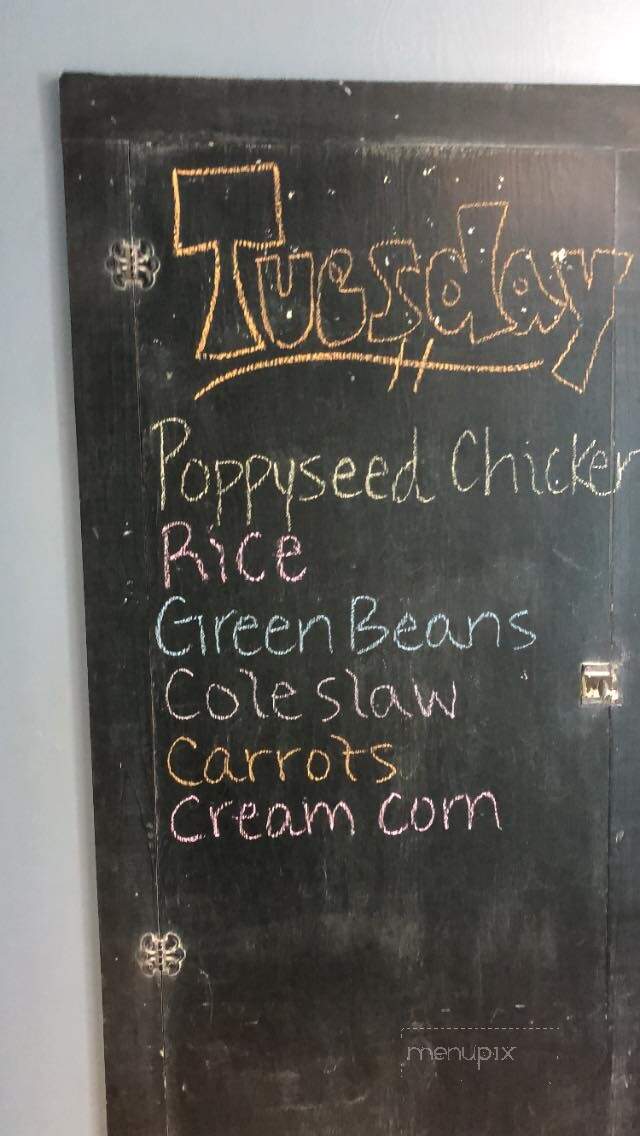 Tuesday
Poppyseed Chicken
Rice
Green Beans
Coleslaw
Carrots
Cream Corn
menupix